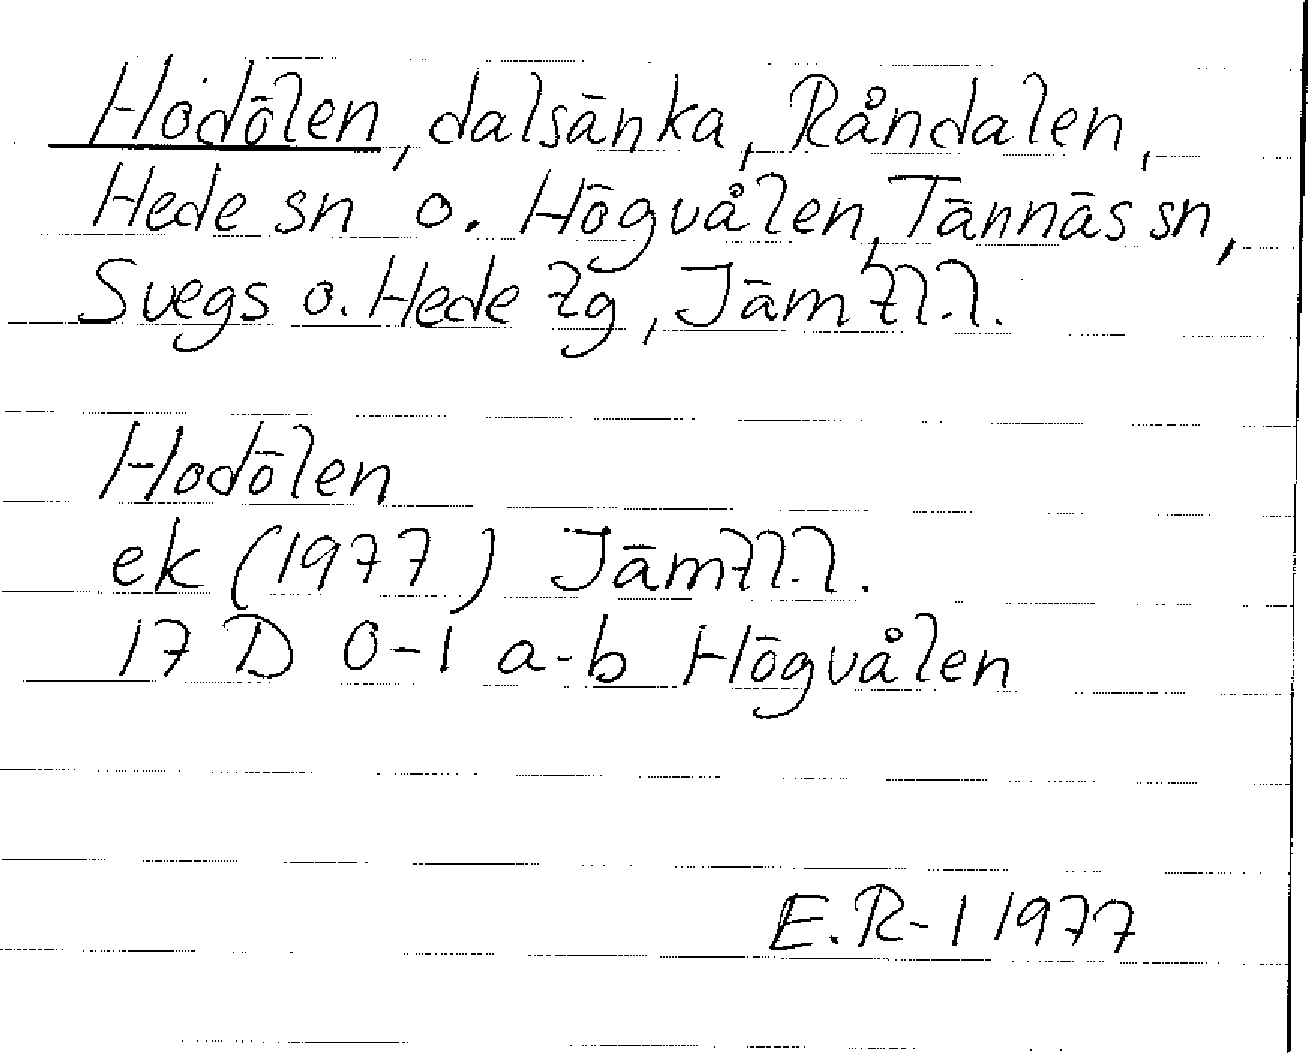 Hodölen, dalsänka, Råndalen,
Hede sn o. Högvålen, Tännäs sn,
Svegs o. Hede lg, Jämtl.l.
Hodölen
ek (1977) Jämtl.l.
17 D 0-1 a-b Högvålen
E.R-l 1977